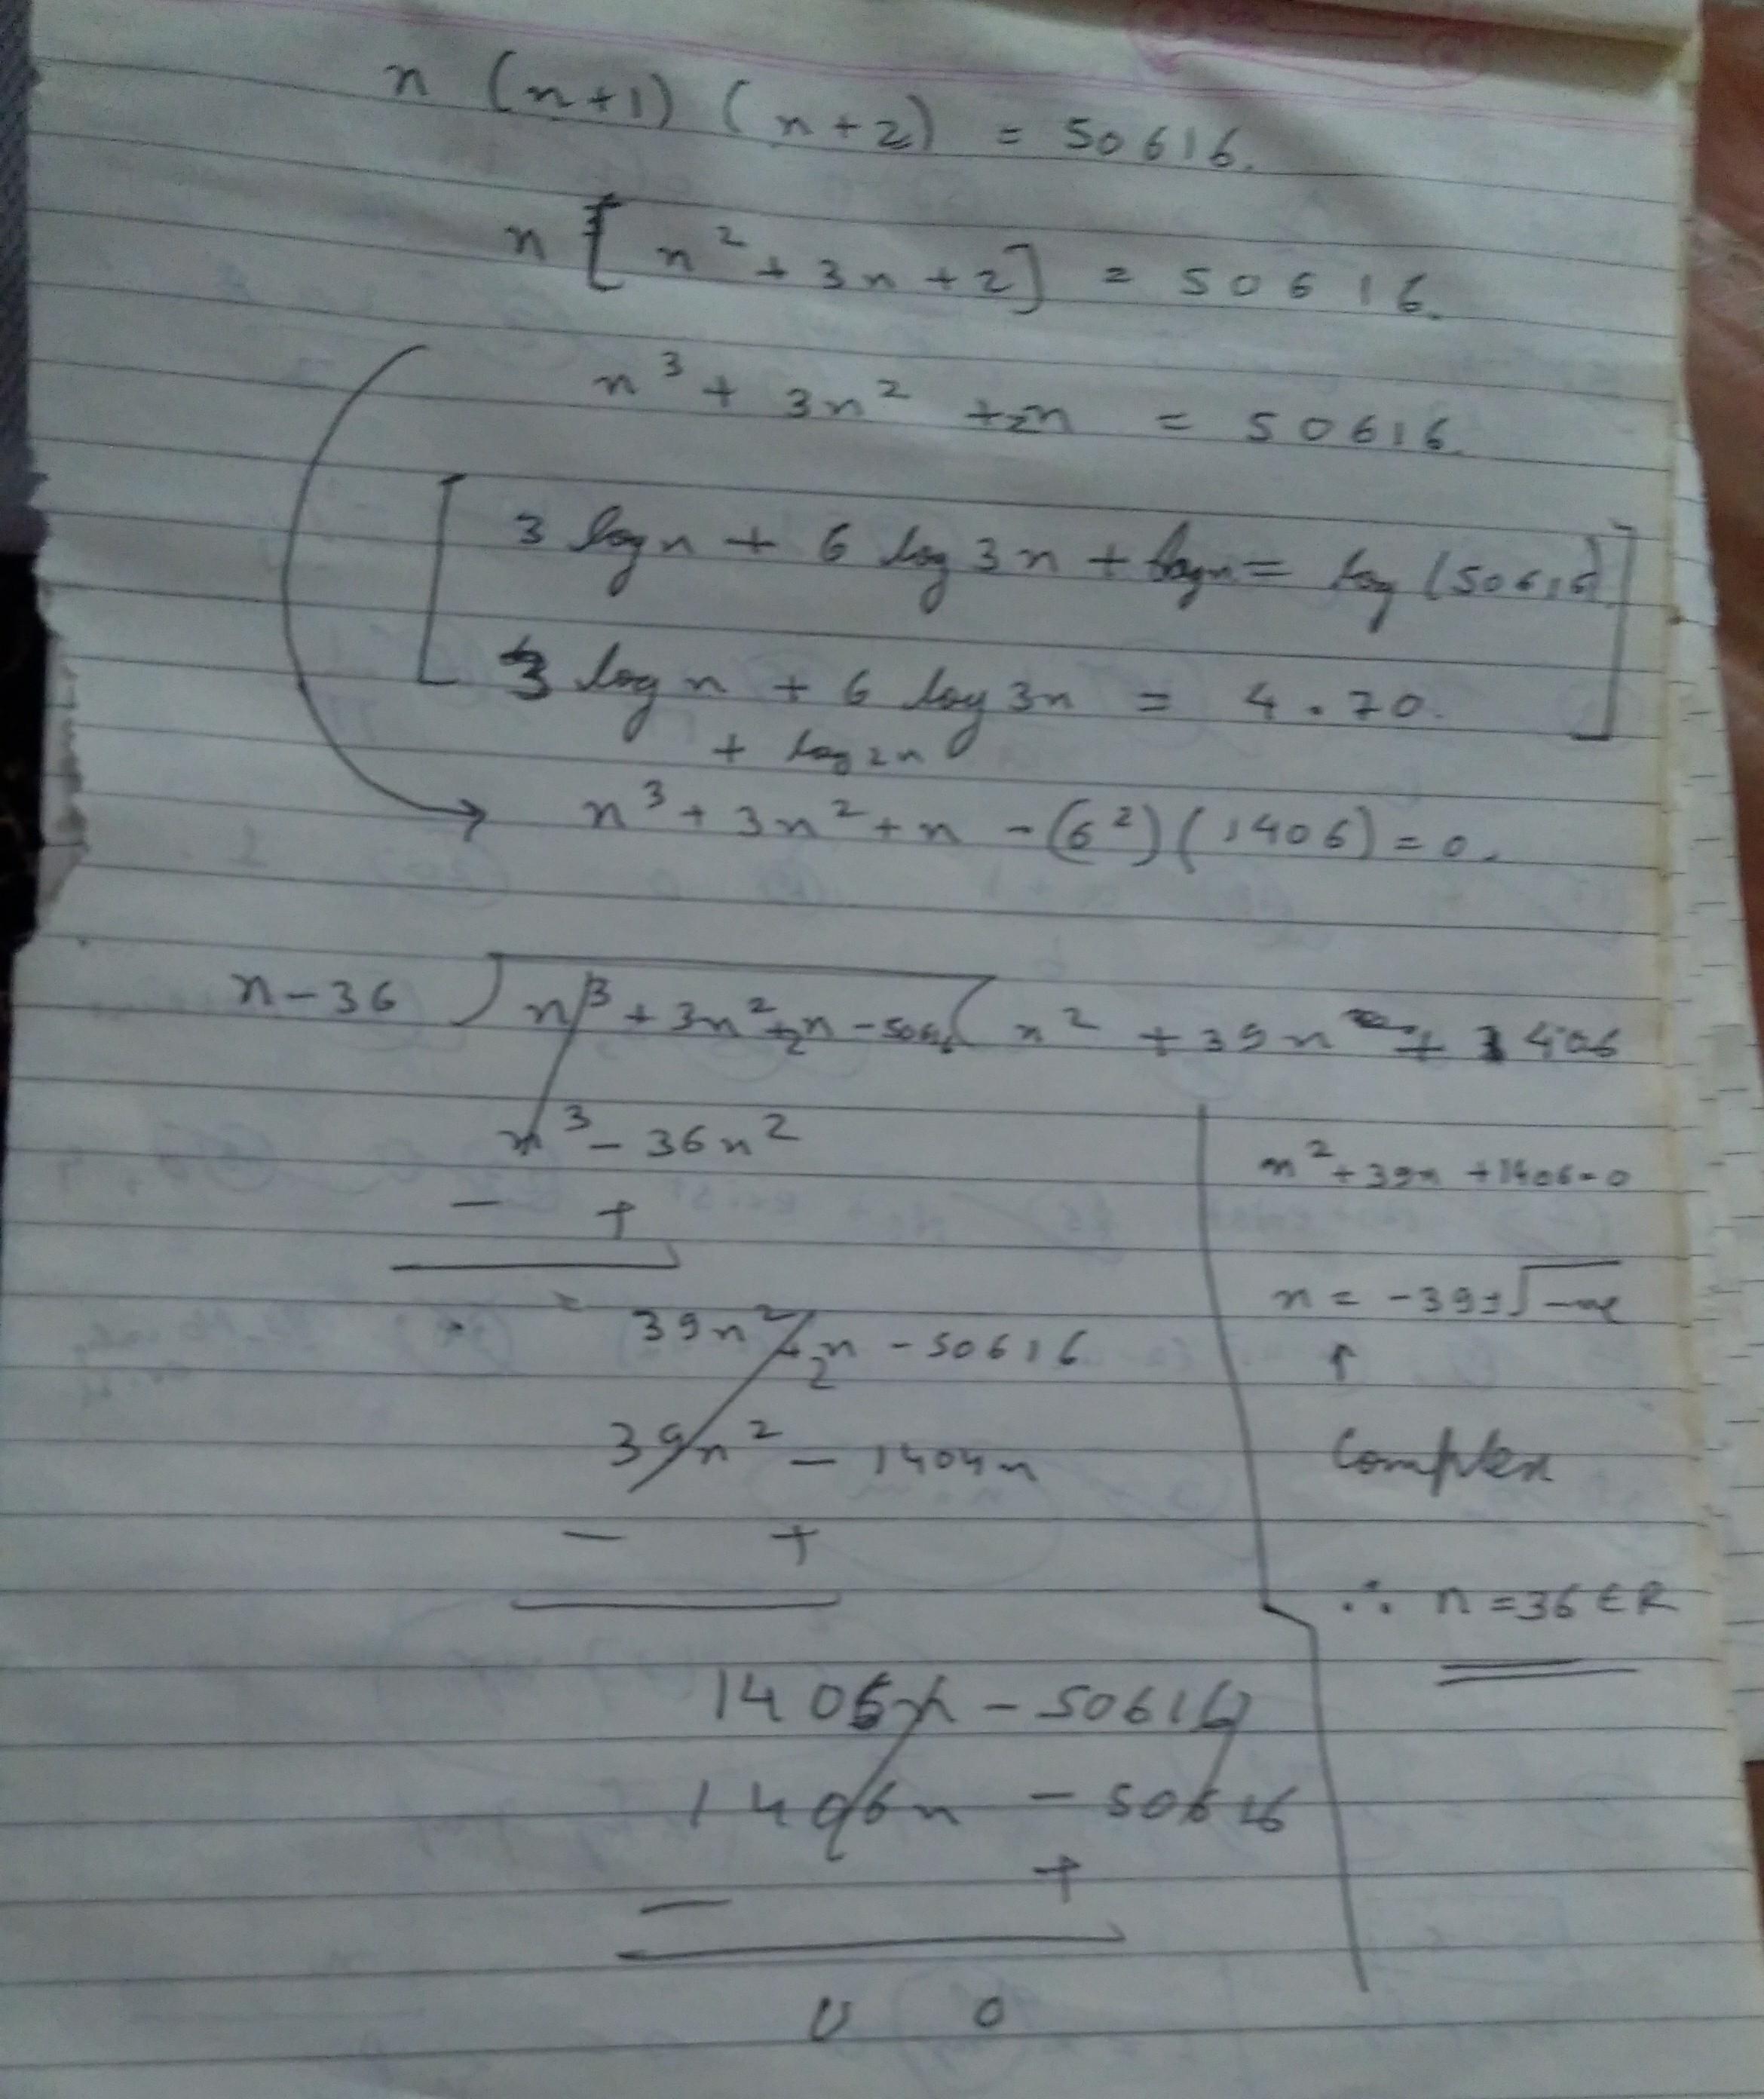 n (n+1) (n+2) = 50616.
n [n² + 3n + 2] = 50616.
n³ + 3n² + 2n = 50616.
3 log n + 6 log 3n + log n = log (50616)
3 log n + 6 log 3n = 4.70.
+ log 2n
n³ + 3n² + n - (6²) (1406) = 0.
n-36 ) n³ + 3n² + 2n - 50616 ( n² + 39n + 1406
n³ - 36n²
- +
= 39n² + 2n - 50616
39n² - 1404n
- +
1406n - 50616
1406n - 50616
- +
0 0
n² + 39n + 1406 = 0
n = -39 ± √-ve
↑
Complex
∴ n = 36 ∈ R